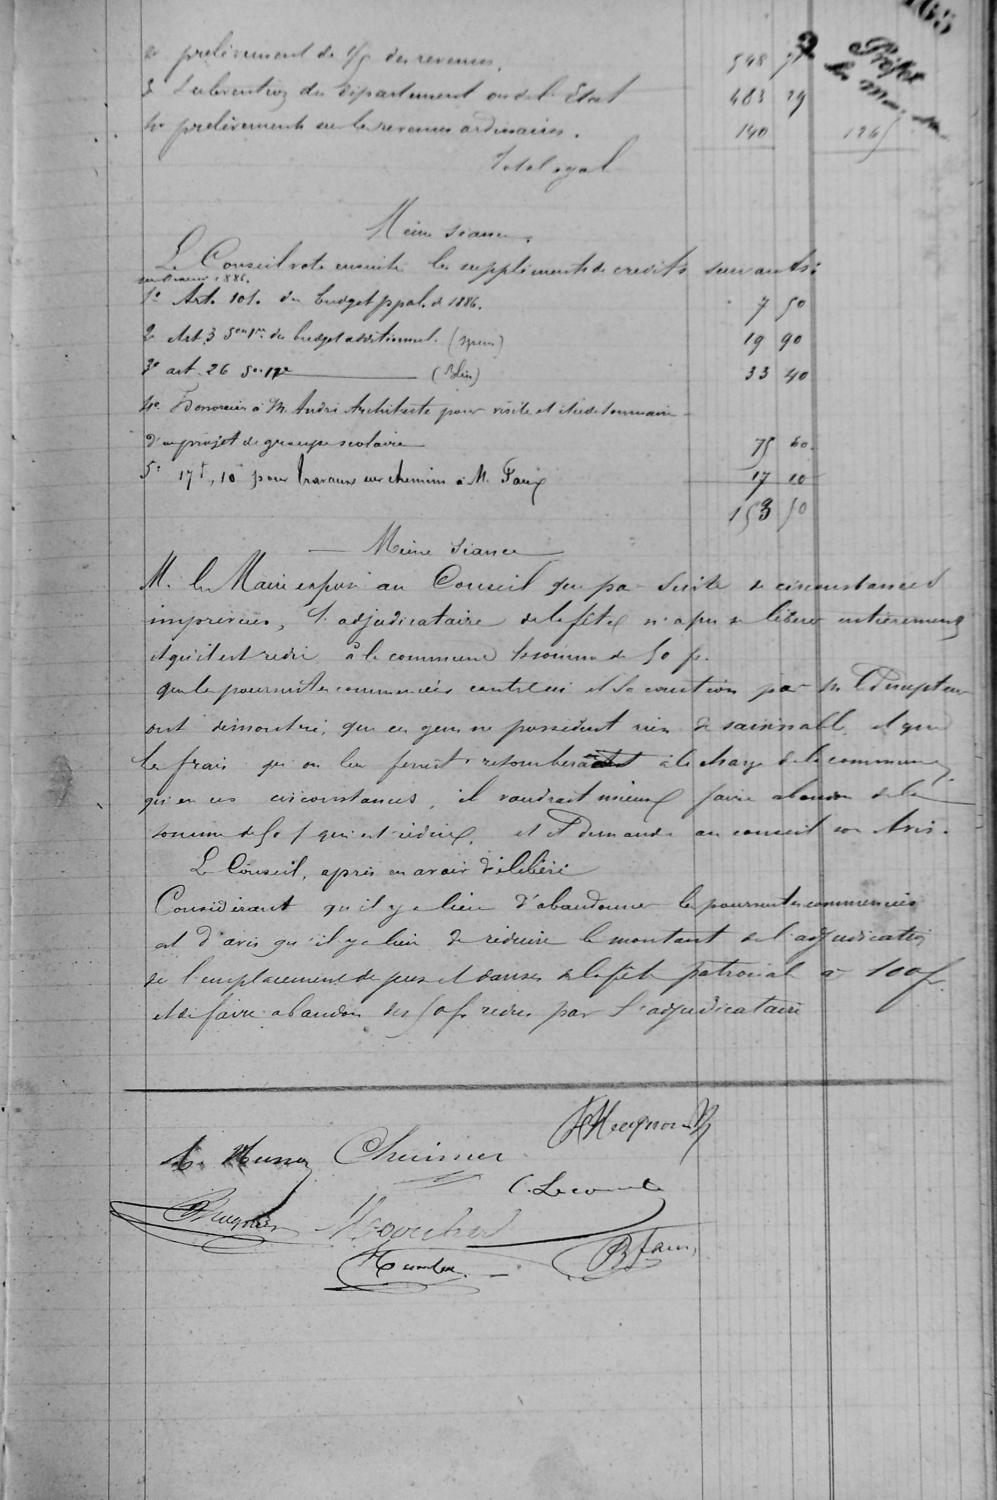 165
2° prélèvement de 1/5 des revenus. 548 71
Préfet
3° Subvention du Département ou de l'Etat 483 29
4° prélèvements sur les revenus ordinaires. 140 1265
Total égal
Même séance.
Le Conseil vote ensuite les suppléments de crédits suivants:
1886.
1° Art. 101. du budget ppal. de 1886. 7 50
2° Art. 3 Son 1re du budget additionnel. 19 90
3° art. 26 Son 1re 33 40
4° Honoraires à M. André Architecte pour visite et étude sommaire
d'un projet de groupe scolaire 75 60
5° 17f,10 pour travaux sur chemins à M. 17 10
153 50
Même séance
M. le Maire expose au Conseil que par suite de circonstances
imprévues, l'adjudicataire de la fête n'a pu se libérer entièrement
et qu'il est redû à la commune la somme de 50 f.
que les poursuites commencées contre lui et sa caution par M.
ont démontré, que ces gens ne possèdent rien de saisissable, et que
les frais qu'on leur ferait retomberaient à la charge de la commune,
qu'en ces circonstances, il vaudrait mieux faire abandon de la
somme de 50 f qui est redue, et demande au conseil son avis.
Le Conseil, après en avoir délibéré
Considérant qu'il y a lieu d'abandonner les poursuites commencées
est d'avis qu'il y a lieu de réduire le montant de l'adjudication
de l'emplacement de jeux et danses de la fête patronale à 100 f.
et de faire abandon des 50 f. redus par l'adjudicataire
C. Lecomte